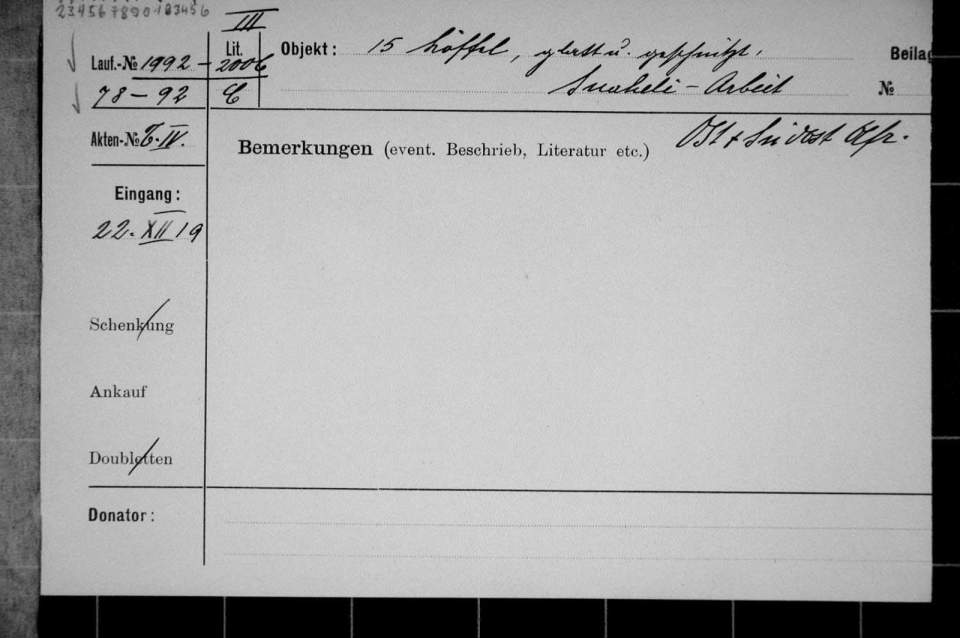 234567890123456
III
Lauf.-№ 1992 – 2006
Lit.
Objekt: 15 Löffel, glatt u. geschnitzt,
Beilag
78 – 92
C
Suaheli – Arbeit
№
Akten-№ IV.
Bemerkungen (event. Beschrieb, Literatur etc.)
Ost & Südost Afr.
Eingang:
22. XII 19
Schenkung
Ankauf
Doubletten
Donator: